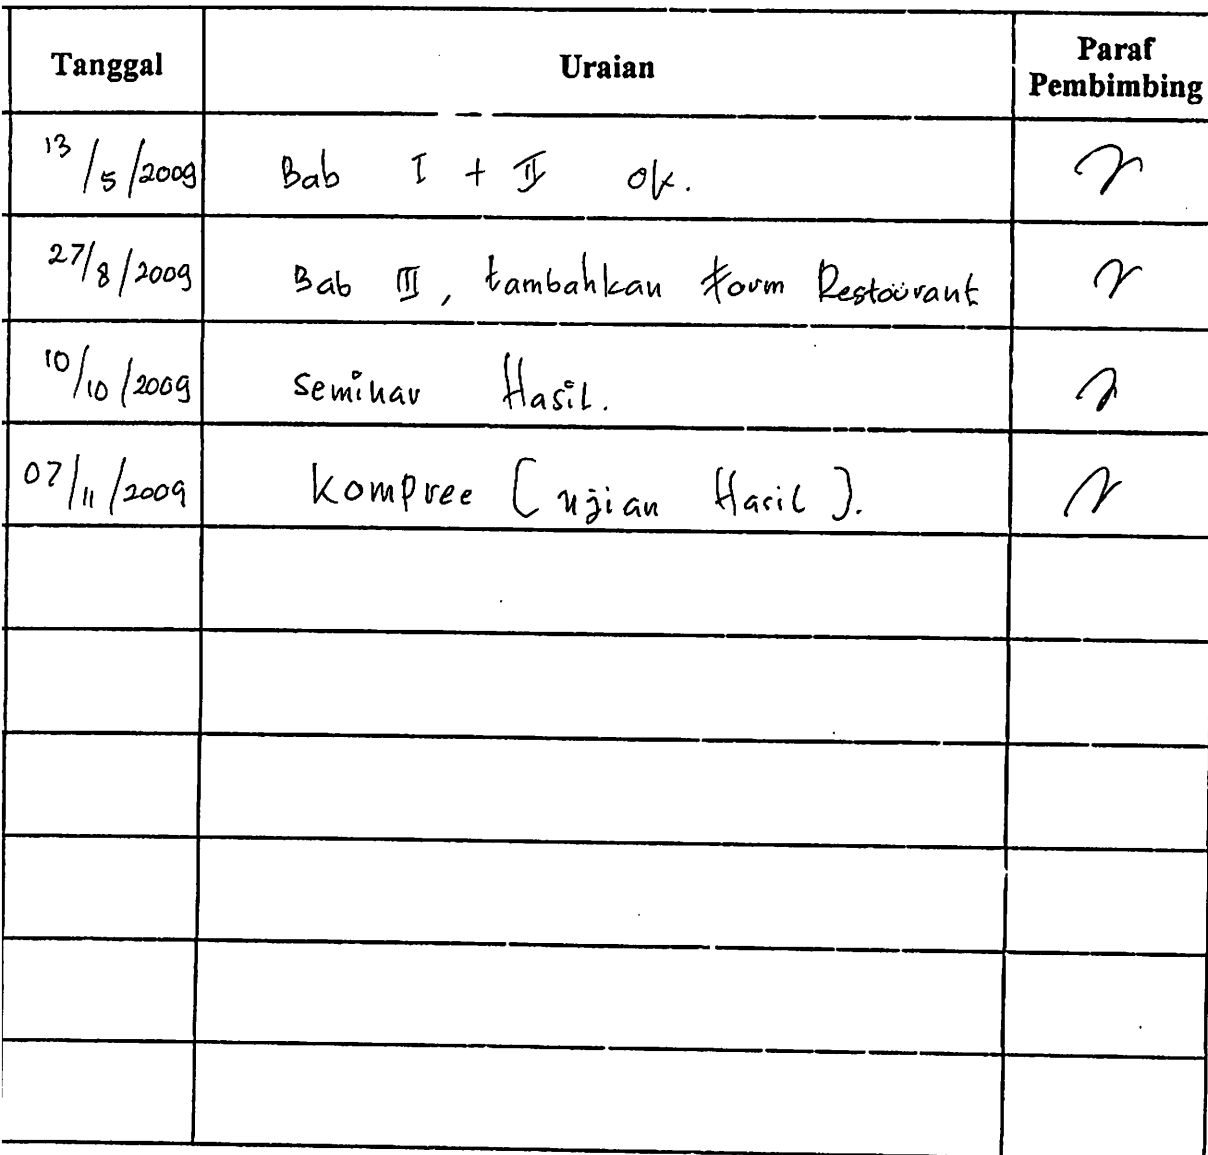 Tanggal Uraian Paraf Pembimbing
13/5/2009 Bab I + II ok.
27/8/2009 Bab III, tambahkan Form Restourant
10/10/2009 Seminar Hasil.
07/11/2009 Kompree (ujian Hasil).